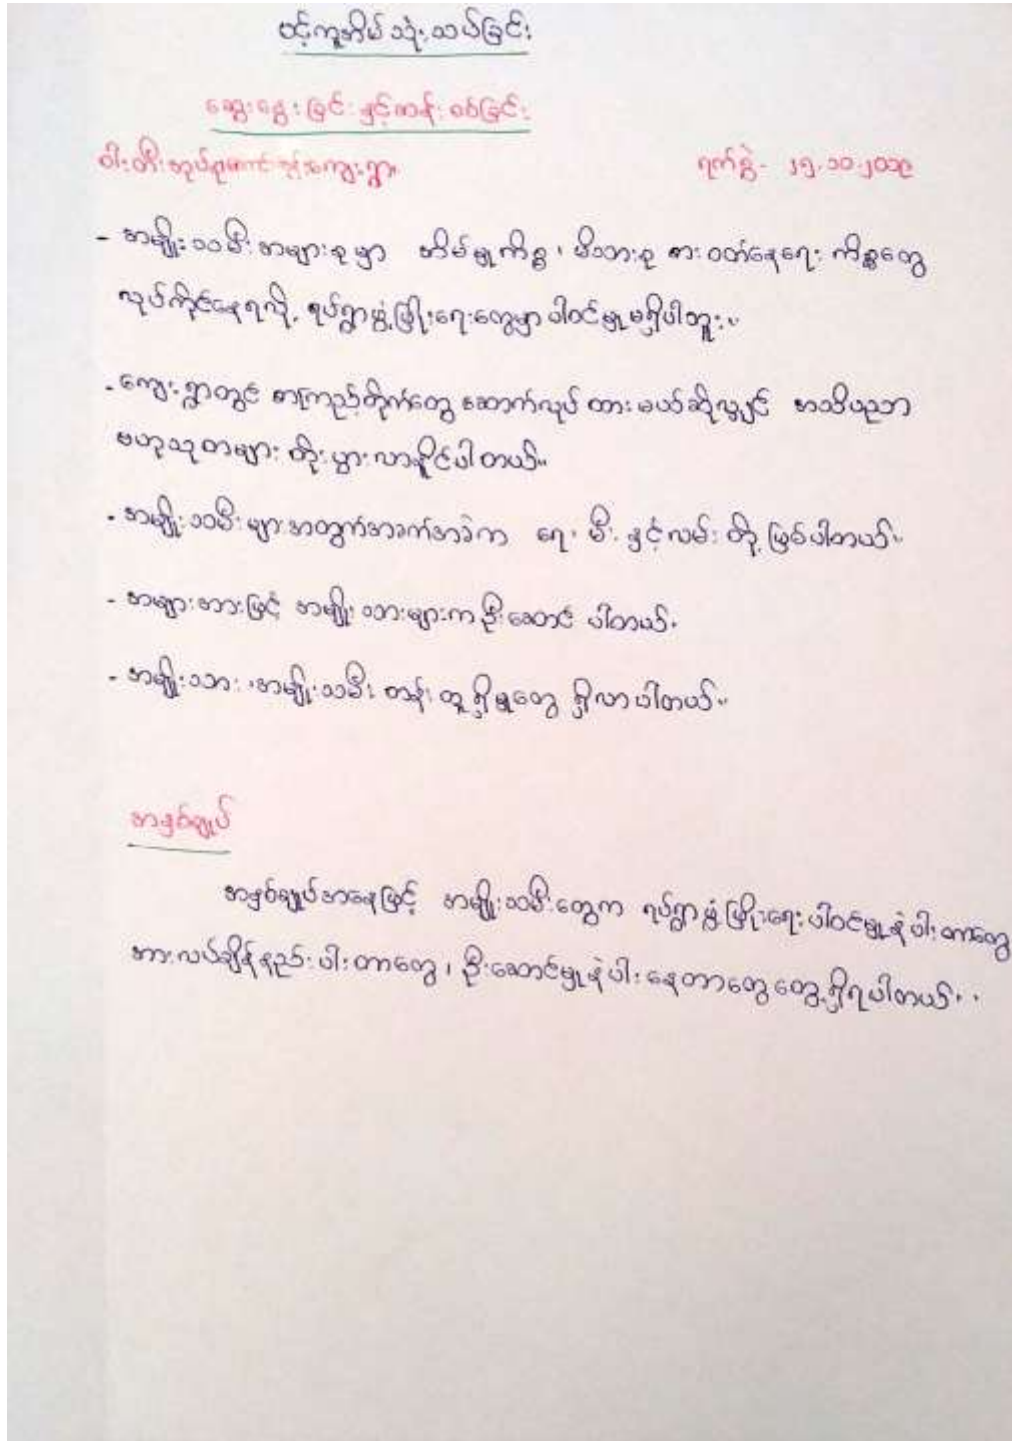 ပင့်ကူအိမ်သုံးသပ်ခြင်း
ဆွေးနွေးခြင်းနှင့်ဆန်းစစ်ခြင်း
ဝါးတီးအုပ်စု ကျေးရွာ
ရက်စွဲ- ၂၅.၁၀.၂၀၁၉
- အမျိုးသမီးအများစုမှာ အိမ်မှုကိစ္စ၊ မိသားစု စားဝတ်နေရေး ကိစ္စတွေ
လုပ်ကိုင်နေရလို့ ရပ်ရွာဖွံ့ဖြိုးရေးတွေမှာ ပါဝင်မှုမရှိပါဘူး။
- ကျေးရွာတွင် စာကြည့်တိုက်တွေ ဆောက်လုပ် ထားမယ်ဆိုလျှင် အသိပညာ
ဗဟုသုတများ တိုးပွားလာနိုင်ပါတယ်။
- အမျိုးသမီးများအတွက်အခက်အခဲက ရေ၊ မီး နှင့်လမ်း တို့ဖြစ်ပါတယ်။
- အများအားဖြင့် အမျိုးသားများကဦးဆောင် ပါတယ်။
- အမျိုးသား၊ အမျိုးသမီး တန်းတူရှိမှုတွေ ရှိလာပါတယ်။
အနှစ်ချုပ်
အနှစ်ချုပ်အနေဖြင့် အမျိုးသမီးတွေက ရပ်ရွာဖွံ့ဖြိုးရေးပါဝင်မှုနဲပါးတာတွေ
အားလပ်ချိန်နည်းပါးတာတွေ၊ ဦးဆောင်မှုနဲပါးနေတာတွေတွေ့ရှိရပါတယ်။